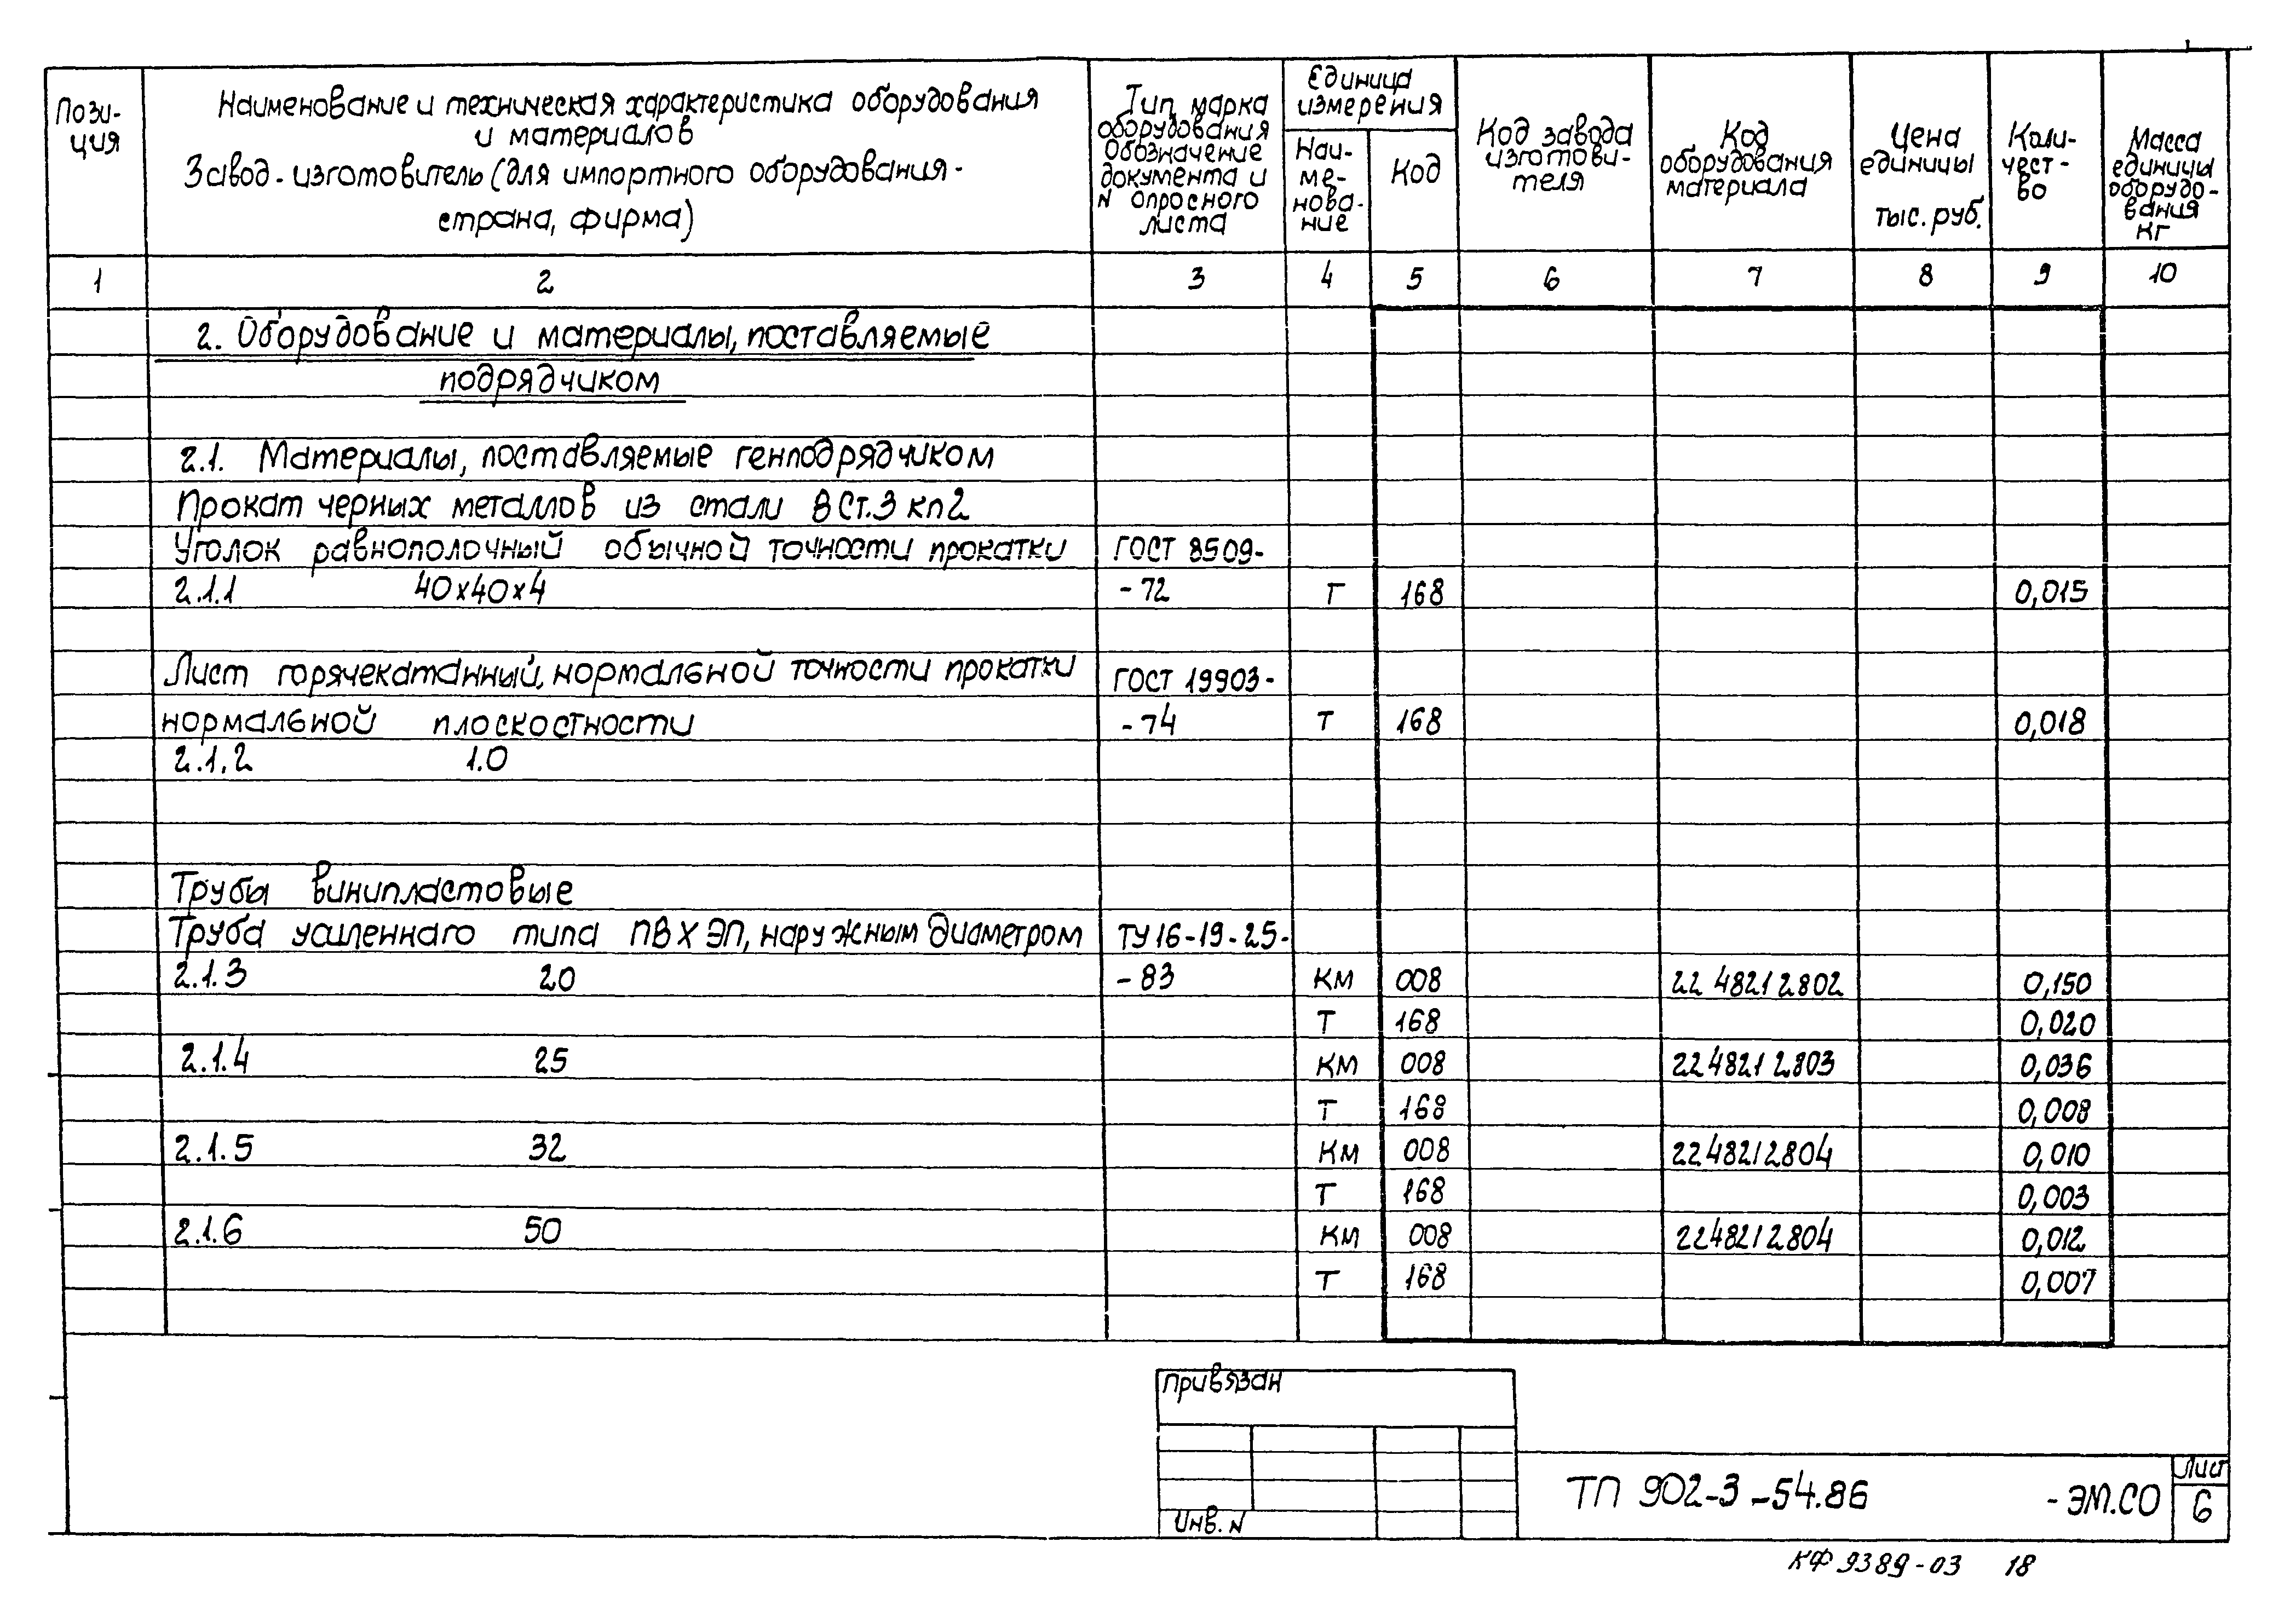 Пози-
ция
Наименование и техническая характеристика оборудования
и материалов
Завод-изготовитель (для импортного оборудования-
страна, фирма)
Тип, марка
оборудования
Обозначение
документа и
N опросного
листа
Единица
измерения
Наи-
ме-
нова-
ние
Код
Код завода
изготови-
теля
Код
оборудования
материала
Цена
единицы
тыс. руб.
Коли-
чест-
во
Масса
единицы
оборудо-
вания
кг
1 2 3 4 5 6 7 8 9 10
2. Оборудование и материалы, поставляемые
подрядчиком
2.1. Материалы, поставляемые генподрядчиком
Прокат черных металлов из стали ВСт.3 кп2
Уголок равнополочный обычной точности прокатки ГОСТ 8509-
2.1.1 40х40х4 -72 Т 168 0,015
Лист горячекатанный, нормальной точности прокатки ГОСТ 19903-
нормальной плоскостности -74 Т 168 0,018
2.1.2 1.0
Трубы винипластовые
Труба усиленнаго типа ПВХ ЭП, наружным диаметром ТУ16-19-25-
2.1.3 20 -83 КМ 008 22 48212802 0,150
Т 168 0,020
2.1.4 25 КМ 008 224821 2803 0,036
Т 168 0,008
2.1.5 32 КМ 008 2248212804 0,010
Т 168 0,003
2.1.6 50 КМ 008 2248212804 0,012
Т 168 0,007
Привязан
Инв. N
ТП 902-3-54.86 -ЭМ.СО
Лист
6
КФ 9389-03 18